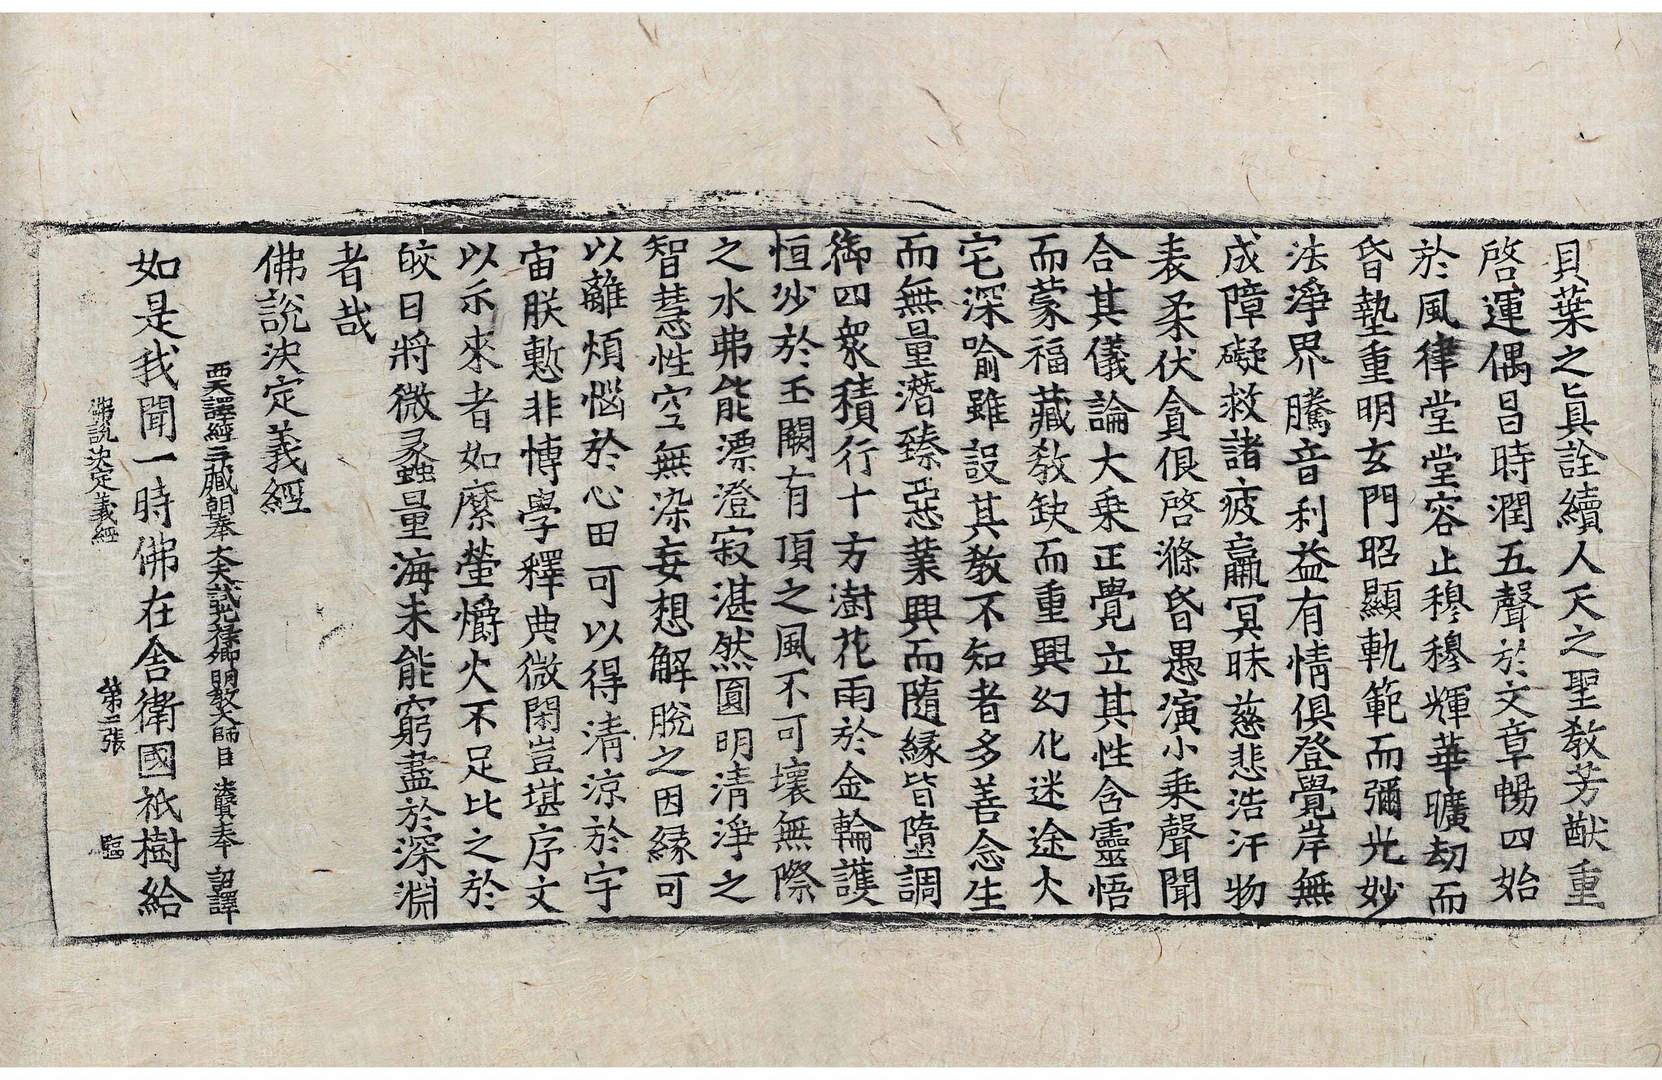 貝葉之旨具詮續人天之聖教芳猷重
啓運偶昌時潤五聲於文章暢四始
於風律堂堂容止穆穆輝華曠劫而
昏墊重明玄門昭顯軌範而彌光妙
法淨界騰音利益有情俱登覺岸無
成障礙救諸疲羸冥昧慈悲浩汗物
表柔伏貪佷啓滌昏愚演小乗聲聞
合其儀論大乗正覺立其性含靈悟
而蒙福藏教缺而重興幻化迷途火
宅深喻雖設其教不知者多善念生
而無量潛臻惡業興而隨緣皆墮調
御四衆積行十方澍花雨於金輪護
恒沙於玉闕有頂之風不可壞無際
之水弗能漂澄寂湛然圓明清淨之
智慧性空無染妄想解脫之因縁可
以離煩惱於心田可以得清涼於宇
宙朕慙非博學釋典微閑豈堪序文
以示來者如縻螢爝火不足比之於
皎日將微螽量海未能窮盡於深淵
者哉
佛說決定義經
西天譯經三藏朝奉大夫試光祿卿明教大師臣法賢奉 詔譯
如是我聞一時佛在舎衛國祇樹給
佛說決定義經 第二張 臨